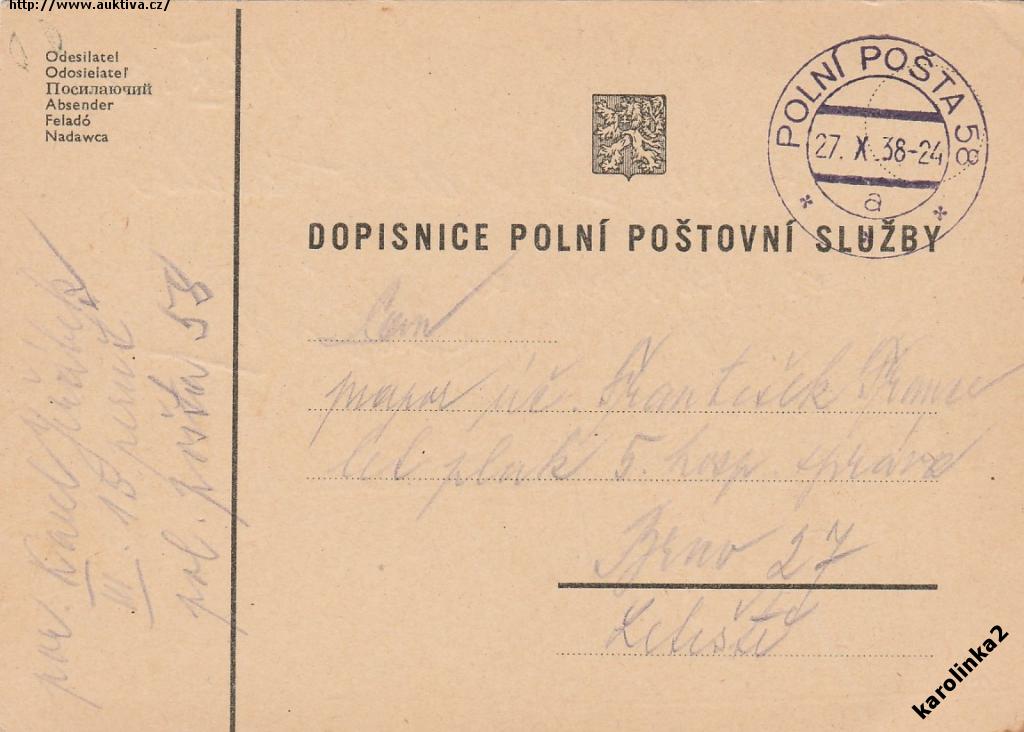 http://www.auktiva.cz/
Odesilatel
Odosielateľ
Посилаючий
Absender
Feladó
Nadawca
POLNÍ POŠTA 58
27. X 38-24
a
DOPISNICE POLNÍ POŠTOVNÍ SLUŽBY
Pan
František
let. pluk 5. hosp. správa
Brno 27
Letiště
por. Karel
II. 15
pol. pošta 58
karolinka2